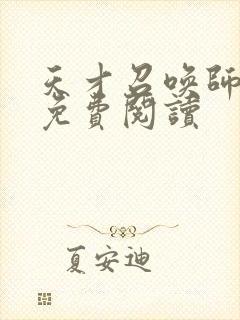 天才召喚師
免費閱讀
夏安迪